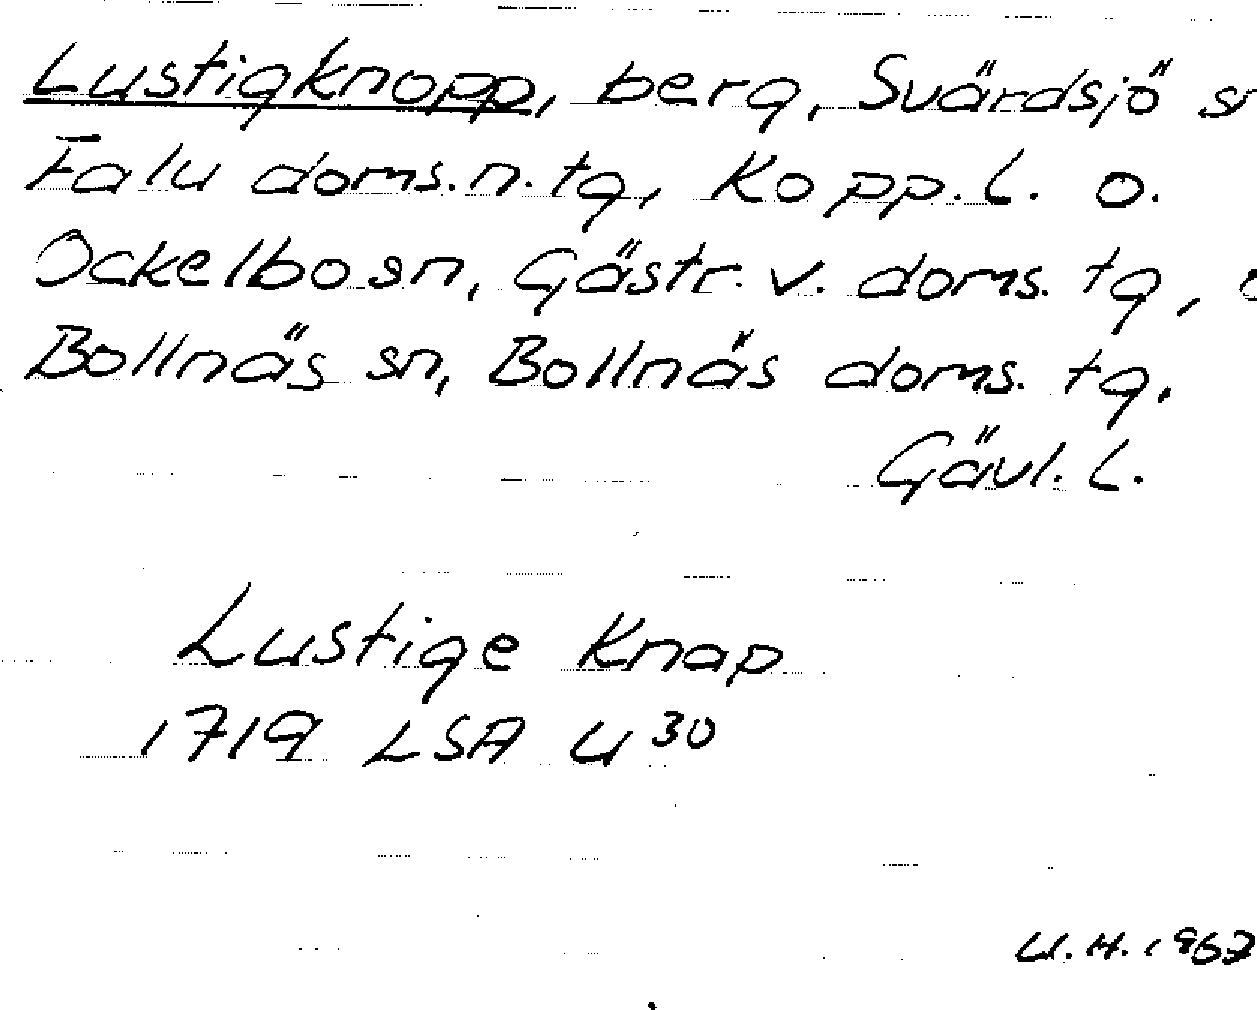 Lustigknopp, berg, Svärdsjö sn
Falu doms.n.tg, Kopp.l. o.
Ockelbo sn, Gästr. v. doms. tg, o
Bollnäs sn, Bollnäs doms. tg.
Gävl. l.
Lustige Knap
1719 LSA U30
U.H. 1967